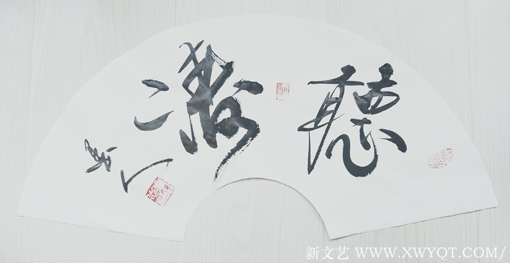 聽濤
新文艺 WWW.XWYQT.COM/